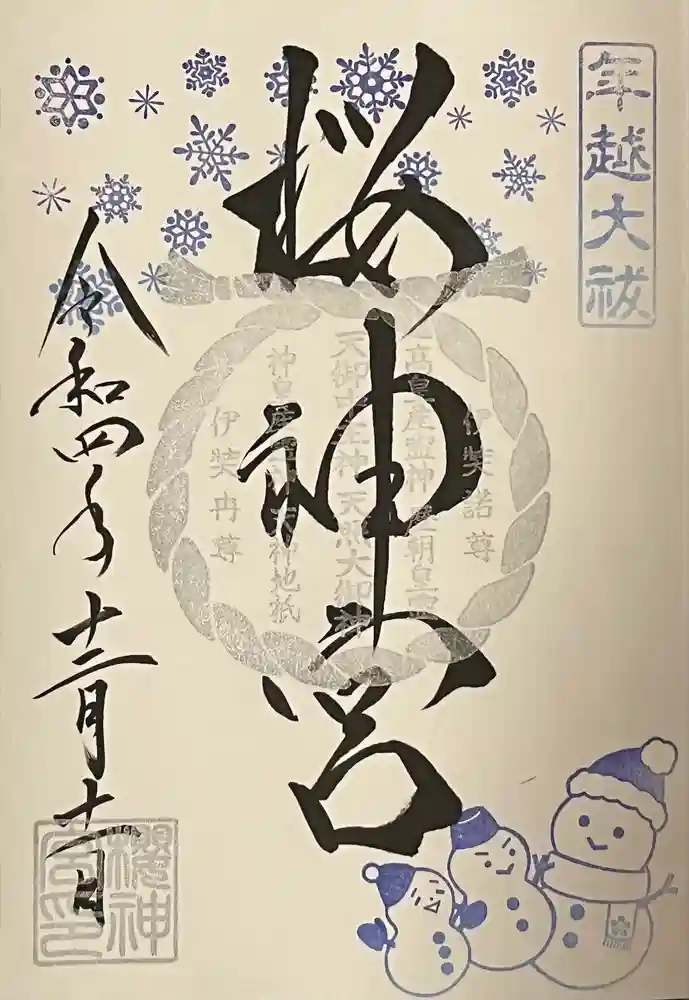 年越大祓
桜神宮
伊奘諾尊
高皇産霊神 歴朝皇霊
天御中主神 天照大御神
神皇産霊神 天神地祇
伊奘冉尊
令和四年十二月十二日
櫻神宮印